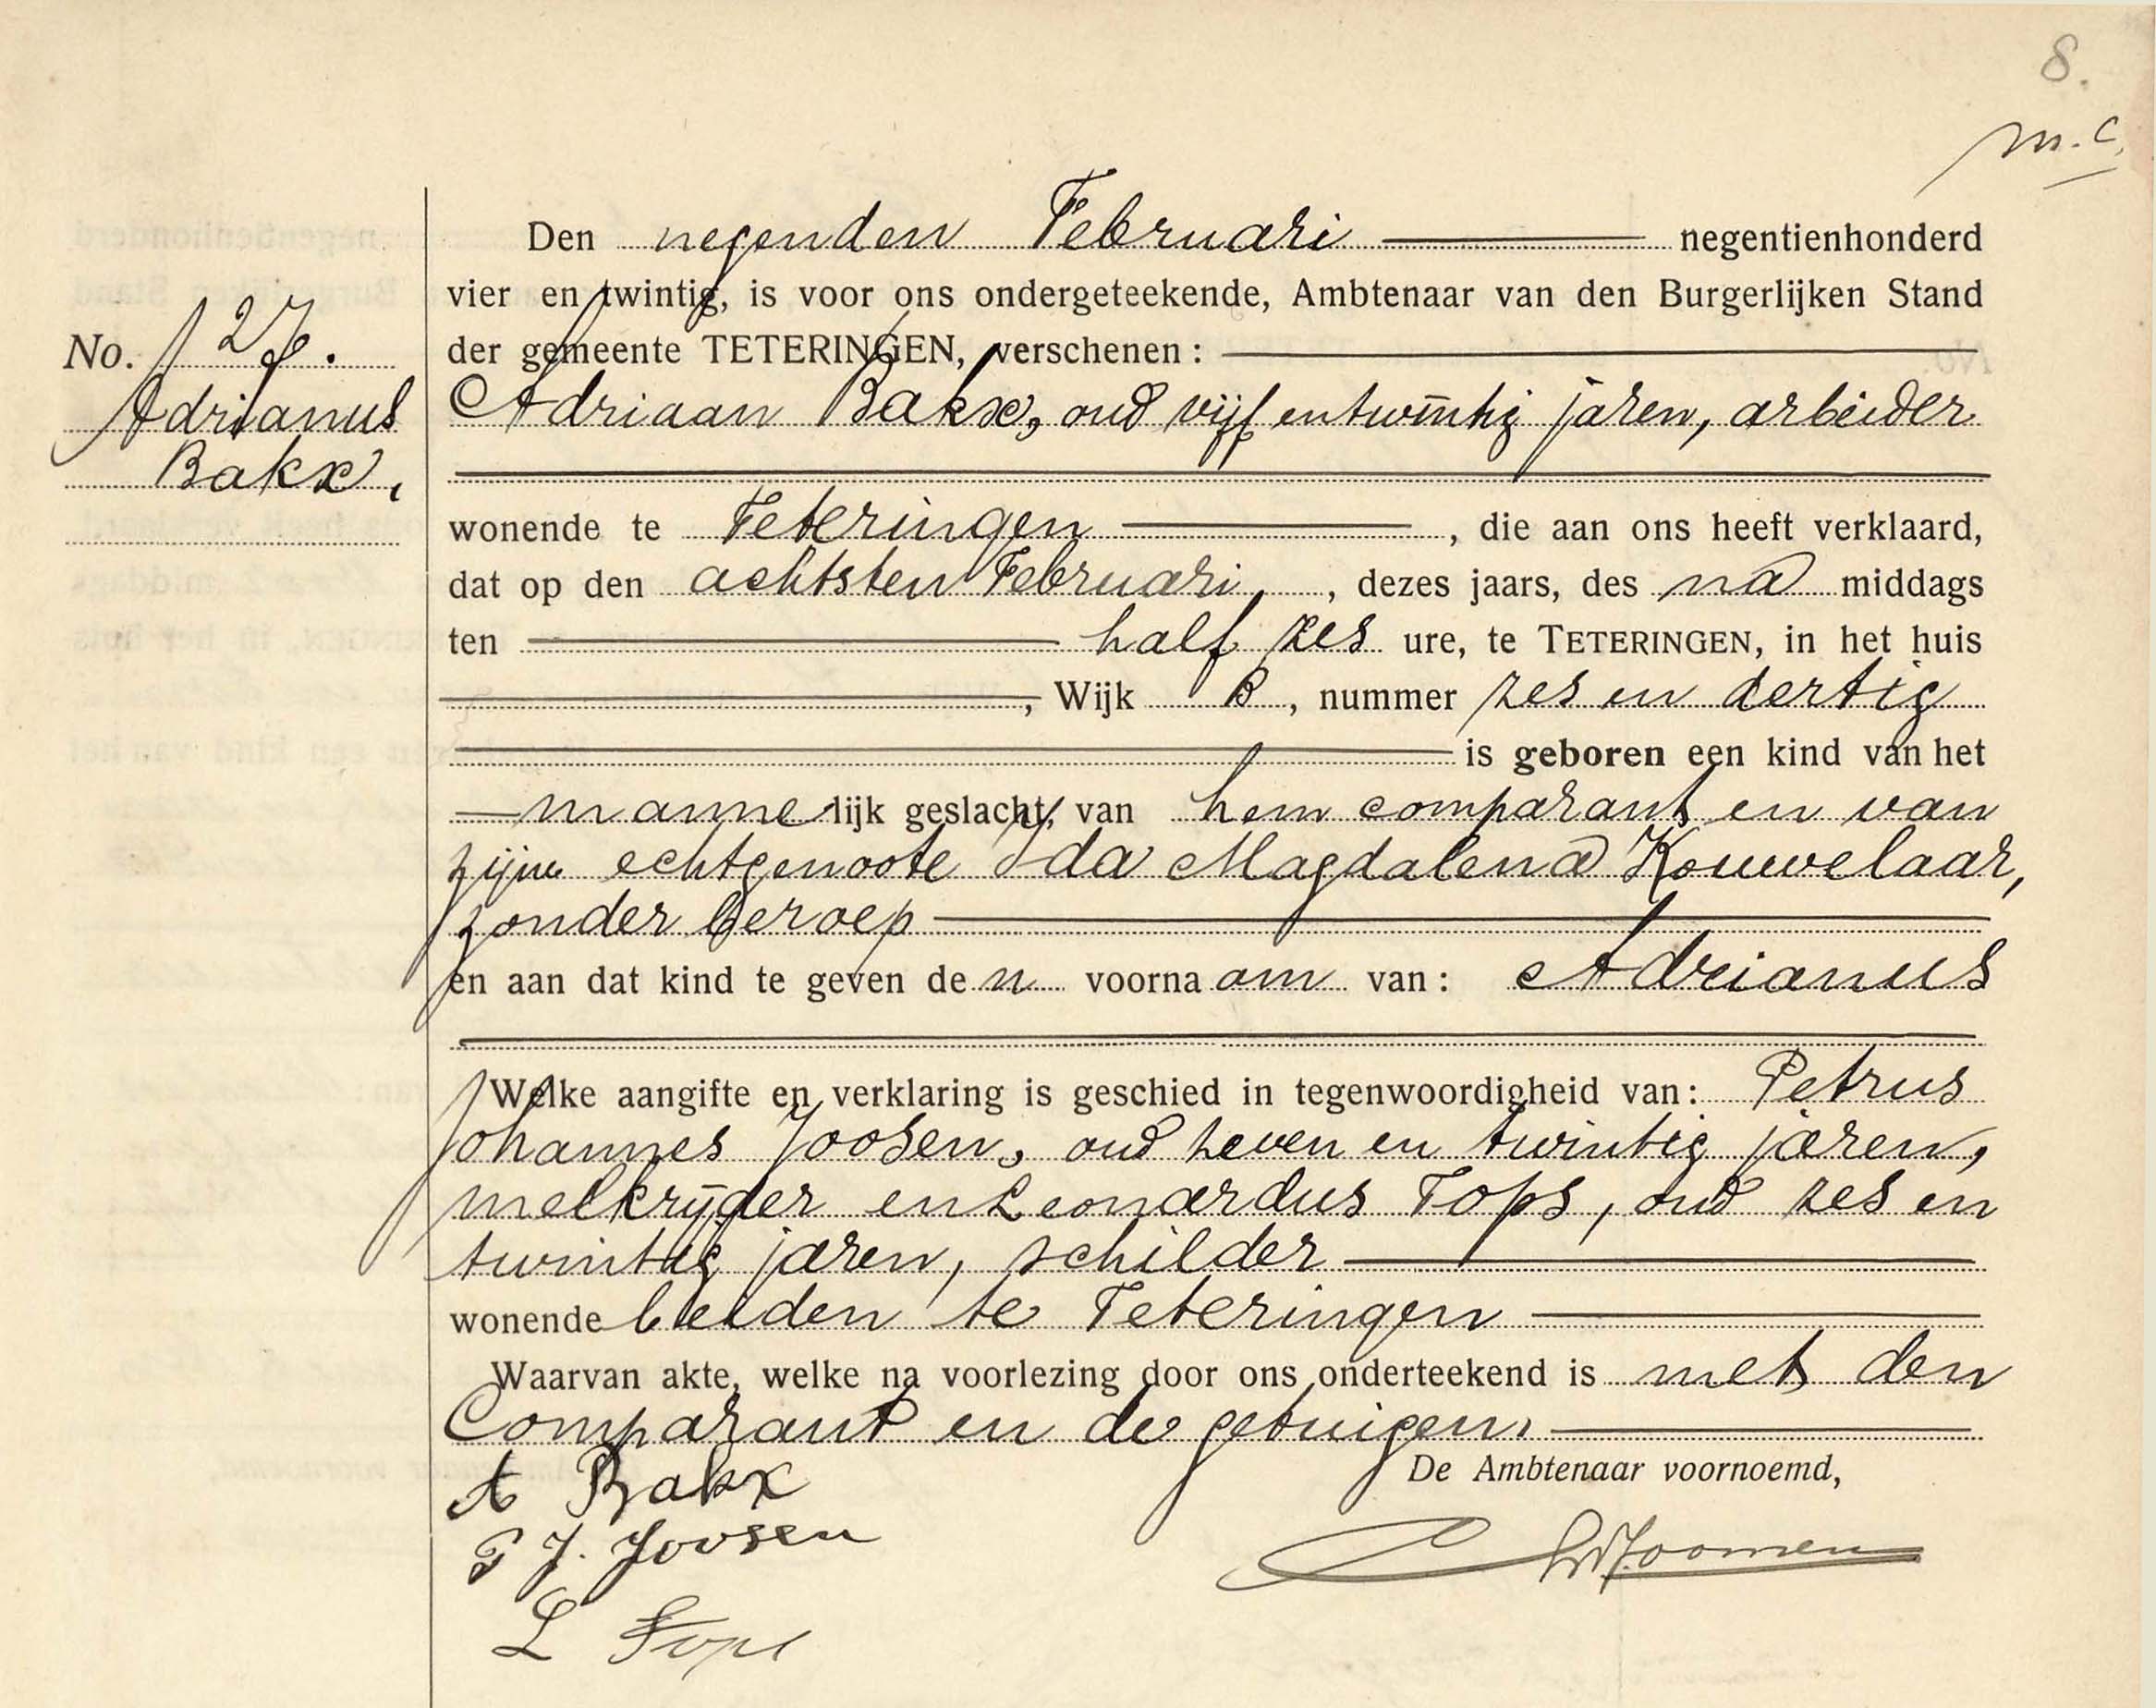 8.
m.c.
Den negenden Februari negentienhonderd
vier en twintig, is voor ons ondergeteekende, Ambtenaar van den Burgerlijken Stand
der gemeente TETERINGEN, verschenen :
No. 27.
Adrianus
Bakx.
Adriaan Bakx, oud vijf en twintig jaren, arbeider
wonende te Teteringen , die aan ons heeft verklaard,
dat op den achtsten Februari , dezes jaars, des na middags
ten half zes ure, te TETERINGEN, in het huis
, Wijk B , nummer zes en dertig
is geboren een kind van het
manne lijk geslacht, van hem comparant en van
zijne echtgenoote Ida Magdalena Kouwelaar,
zonder beroep
en aan dat kind te geven de n voorna am van : Adrianus
Welke aangifte en verklaring is geschied in tegenwoordigheid van : Petrus
Johannes Joosen, oud zeven en twintig jaren,
melkrijder en Leonardus Tops, oud zes en
twintig jaren, schilder
wonende beiden te Teteringen
Waarvan akte, welke na voorlezing door ons onderteekend is met den
Comparant en de getuigen.
De Ambtenaar voornoemd,
A Bakx
P J. Joosen
L Tops